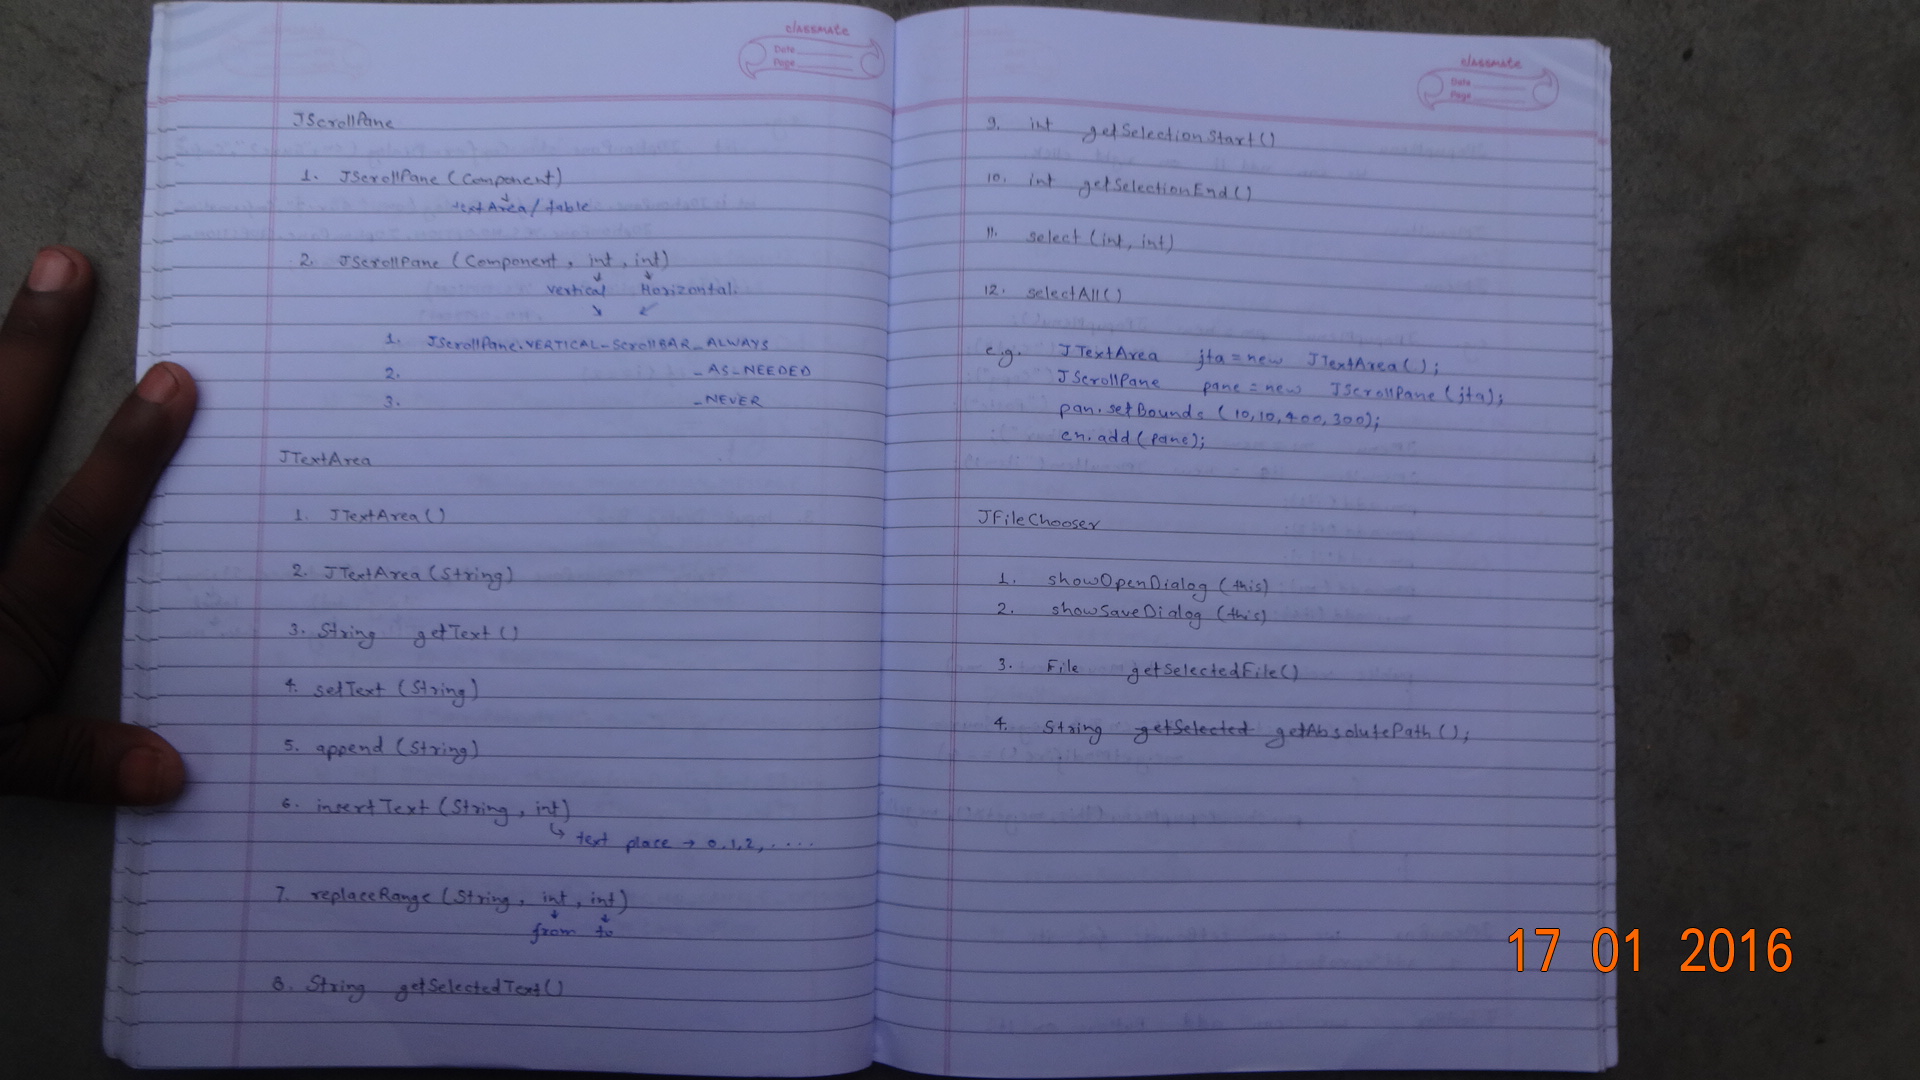 classmate
Date
Page
JScrollPane
1. JScrollPane (Component)
textArea/table
2. JScrollPane (Component, int, int)
vertical Horizontal.
1. JScrollPane.VERTICAL_ScrollBAR_ALWAYS
2. _AS_NEEDED
3. _NEVER
JTextArea
1. JTextArea()
2. JTextArea(String)
3. String getText()
4. setText (String)
5. append (String)
6. insertText (String, int)
↳ text place → 0,1,2,....
7. replaceRange (String, int, int)
from to
8. String getSelectedText()
classmate
Date
Page
9. int getSelectionStart()
10. int getSelectionEnd()
11. select (int, int)
12. selectAll()
e.g. JTextArea jta = new JTextArea();
JScrollPane pane = new JScrollPane (jta);
pan.setBounds (10,10,400,300);
cn.add (pane);
JFileChooser
1. showOpenDialog (this)
2. showSaveDialog (this)
3. File getSelectedFile()
4. String getSelected getAbsolutePath();
17 01 2016